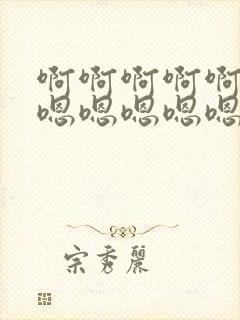 啊啊啊啊啊
嗯嗯嗯嗯嗯
宗秀丽